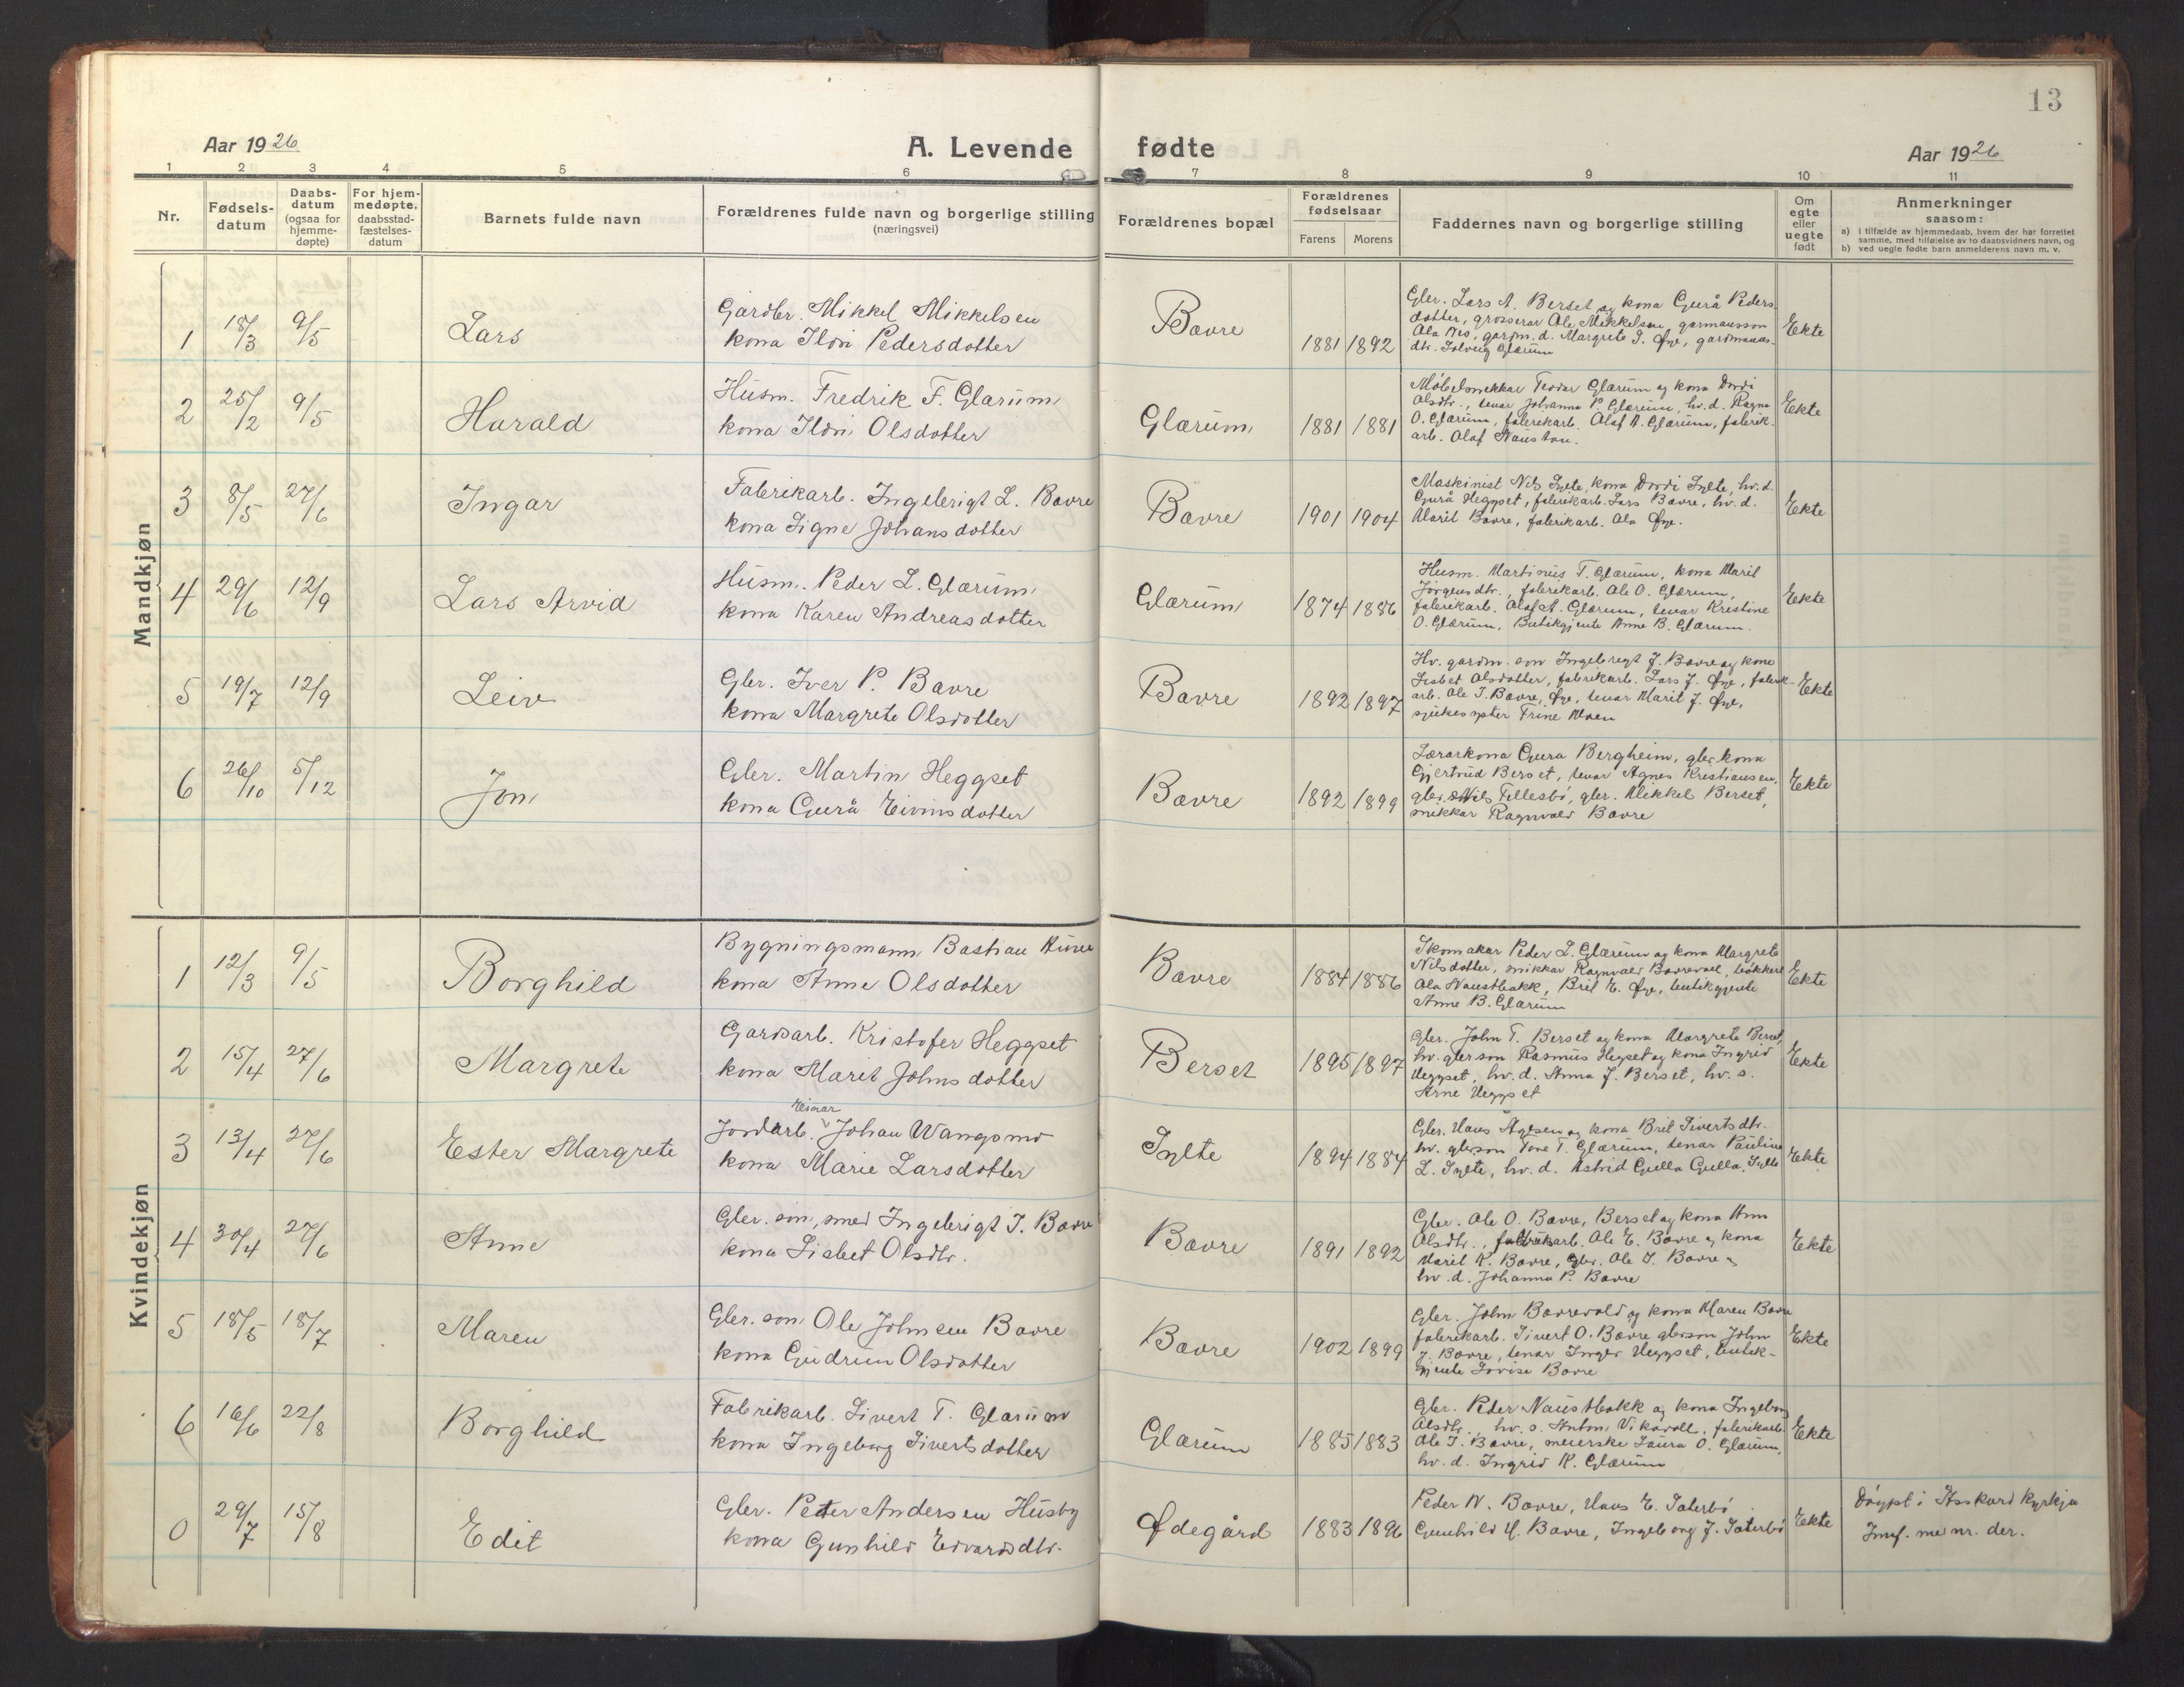 13
Aar 1926
A. Levende fødte
Aar 1926
1 2 3 4 5 6 7 8 9 10 11
Nr.
Fødsels-
datum
Daabs-
datum
(ogsaa for
hjemme-
døpte)
For hjem-
medøpte.
daabsstad-
fæstelses-
datum
Barnets fulde navn
Forældrenes fulde navn og borgerlige stilling
(næringsvei)
Forældrenes bopæl
Forældrenes
fødselsaar
Farens Morens
Faddernes navn og borgerlige stilling
Om
egte
eller
uegte
født
Anmerkninger
saasom:
a) i tilfælde av hjemmedaab, hvem der har forrettet
samme, med tilføielse av to daabsvidners navn, og
b) ved uegte fødte barn anmelderens navn m. v.
Mandkjøn
1 18/3 9/5 Lars
Gardbr. Mikkel Mikkelsen
kona Ildri Pedersdotter
Bævre 1881 1892
Gbr. Lars A. Berset og kona Gurå Peders-
dotter, grosserar Ole Mikkelsen, garmansson
Ola Nes, gardm. d. Margrete J. Øye, gardmans-
dtr. Solveig Glærum
Ekte
2 25/2 9/5 Harald
Husm. Fredrik F. Glærum
kona Ildri Olsdotter
Glærum 1881 1881
Møbelsnekkar Teodor Glærum og kona Dordi
Olsdtr., tenar Johanna P. Glærum, hv. d. Ragna
O. Glærum, fabrikarb. Olaf K. Glærum, fabrik-
arb. Olaf Naustan.
Ekte
3 8/5 27/6 Ingar
Fabrikarb. Ingebrigt L. Bævre
kona Signe Johansdotter
Bævre 1901 1904
Maskinist Nils Sylte, kona Dordi Sylte, hv. d.
Gurå Heggset, fabrikarb. Lars Bævre, hv. d.
Marit Bævre, fabrikarb. Ola Øye.
Ekte
4 29/6 12/9 Lars Arvid
Husm. Peder L. Glærum
kona Karen Andreasdotter
Glærum 1874 1886
Husm. Martinus T. Glærum, kona Marit
Jørgensdtr., fabrikarb. Ole O. Glærum,
fabrikarb. Olaf A. Glærum, tenar Kristine
O. Glærum, Butikgjente Anne B. Glærum.
Ekte
5 19/7 12/9 Leiv
Gbr. Iver P. Bævre
kona Margrete Olsdotter
Bævre 1892 1897
Hv. gardm. son Ingebrigt J. Bævre og kone
Lisbet Olsdotter, fabrikarb. Lars J. Øye, fabrik-
arb. Ole J. Bævre, Øye, tenar Marit J. Øye,
sjukesyster Trine Moen
Ekte
6 26/10 5/12 Jon
Gbr. Martin Heggset
kona Gurå Eivinsdotter
Bævre 1892 1899
Lærarkona Gura Bergheim, gbr. kona
Gjertrud Berset, tenar Agnes Kristiansen,
gbr. Nils Tellesbø, gbr. Mikkel Berset,
snikkar Ragnvald Bævre
Ekte
Kvindekjøn
1 12/3 9/5 Borghild
Bygningsmann Bastian
kona Anne Olsdotter
Bævre 1884 1886
Skomakar Peder L. Glærum og kona Margrete
Nilsdotter, snikkar Ragnvald Bævrevoll, bøkker
Ola Naustbakk, Brit E. Øye, butikgjente
Anne B. Glærum
Ekte
2 15/4 27/6 Margrete
Gardarb. Kristofer Heggset
kona Marit Johnsdotter
Berset 1895 1897
Gbr. John T. Berset og kona Margrete Berset,
hv. gbr son Rasmus Hegset og kona Ingrid
Heggset, hv. d. Anna J. Berset, hv. s.
Arne Heggset
Ekte
3 13/4 27/6 Ester Margrete
Einar
Jordarb. Johan Wangsmo
kona Marie Larsdotter
Sylte 1894 1884
Gbr. Hans Ågesen og kona Brit Sivertsdtr.
hv. gbrson Tore T. Glærum, tenar Pauline
L. Sylte, hv. d. Astrid Gulla Gulla, Sylte
Ekte
4 30/4 27/6 Anne
Gbr. son, smed Ingebrigt J. Bævre
kona Lisbet Olsdtr.
Bævre 1891 1892
Gbr. Ole O. Bævre, Berset og kona Ann
Olsdtr., fabrikarb. Ole E. Bævre og kona
Marit K. Bævre, gbr. Ole J. Bævre og
hv. d. Johanna P. Bævre
Ekte
5 18/5 18/7 Maren
Gbr. son Ole Johnsen Bævre
kona Gudrun Olsdotter
Bævre 1902 1899
Gbr. John Bævrevold og kona Maren Bævre
fabrikarb. Sivert O. Bævre gbrson John
J. Bævre, tenar Inger Heggset, butik-
gjente Lovise Bævre
Ekte
6 16/6 22/8 Borghild
Fabrikarb. Sivert T. Glærum
kona Ingeborg Sivertsdotter
Glærum 1885 1883
Gbr. Peder Naustbakk og kona Ingeborg
Olsdtr., hv. s. Anton Vikavoll, fabrikarb.
Ole J. Bævre, meierske Laura O. Glærum,
hv. d. Ingrid K. Glærum
Ekte
0 29/7 15/8 Edit
Gbr. Peter Andersen Husby
kona Gunhild Edvardsdtr.
Ødegård 1883 1896
Peder N. Bævre, Hans E. Saterbø
Gunhild H. Bævre, Ingeborg J. Saterbø
Ekte
Døypt i Åsskard Kyrkja
Innf. me nr. der.